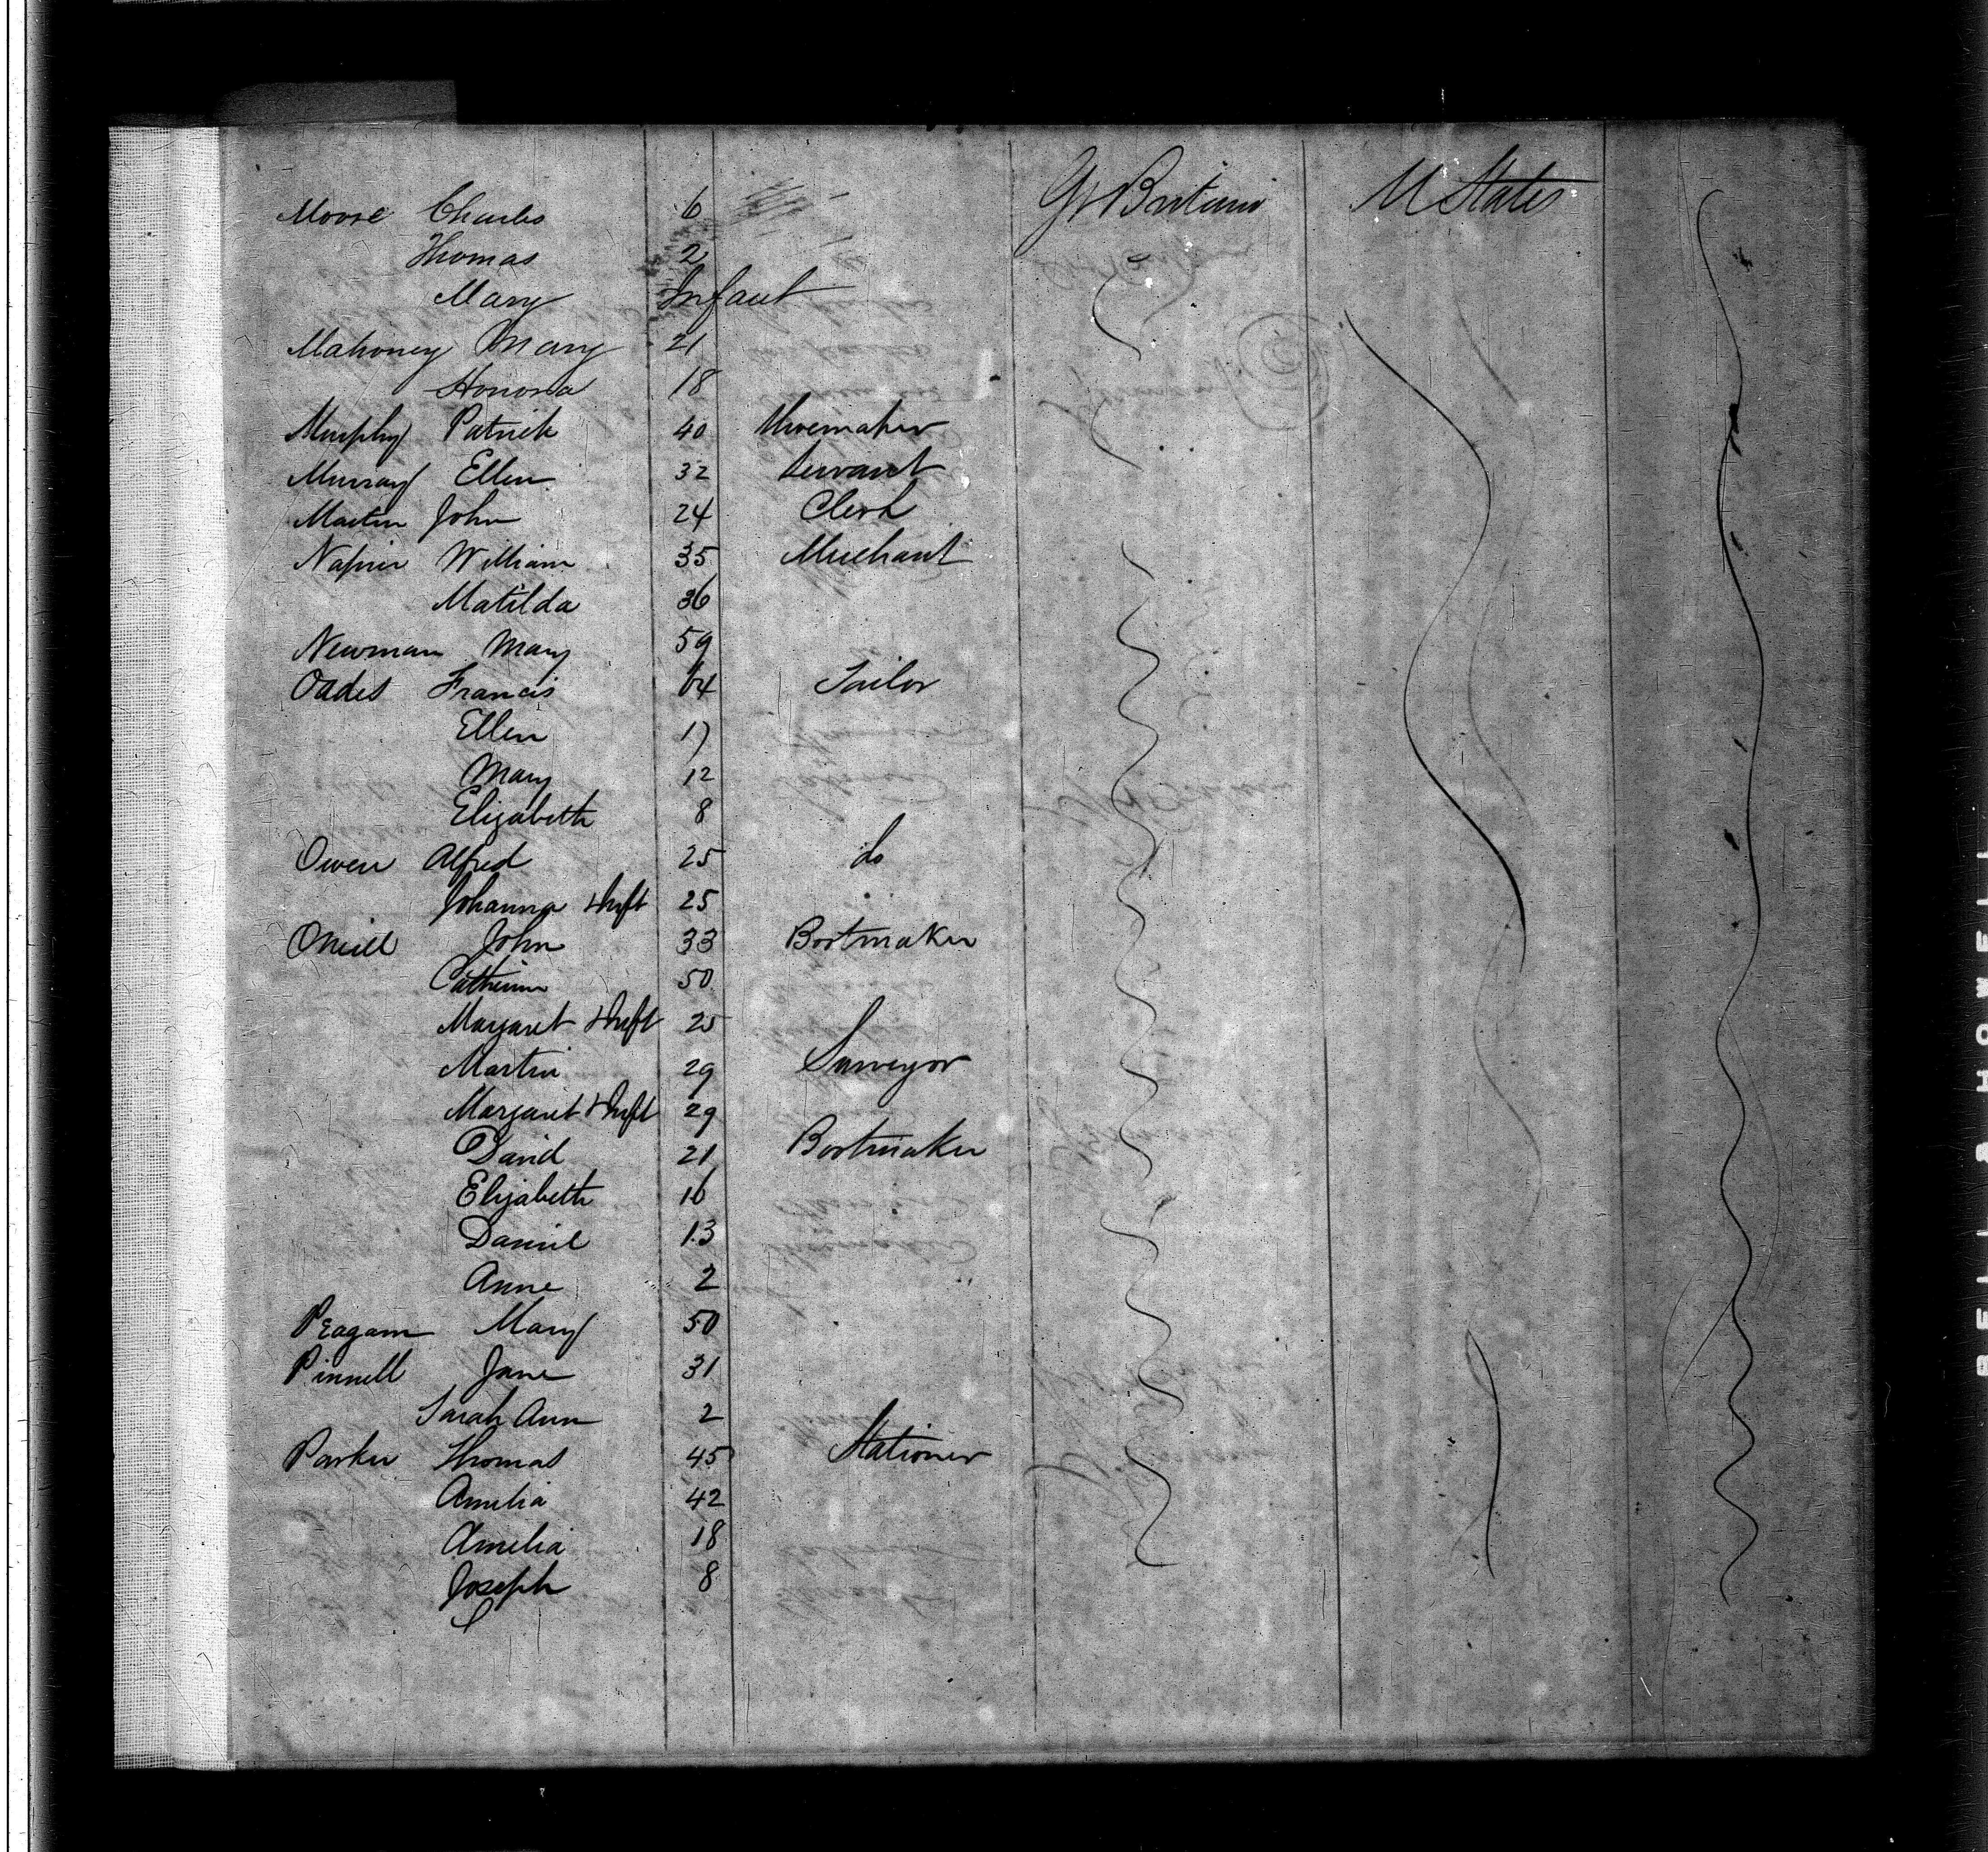 Moore Charles 6 Gt Britain U States
Thomas 2
Mary Infant
Mahoney Mary 21
Honora 18
Murphy Patrick 40 Shoemaker
Murray Ellen 32 Servant
Martin John 24 Clerk
Napier William 35 Merchant
Matilda 36
Newman Mary 59
Oades Francis 64 Tailor
Ellen 17
Mary 12
Elizabeth 8
Owen Alfred 25 do
Johanna 25
Oneill John 33 Bootmaker
Catherine 50
Margaret 25
Martin 29 Surveyor
Margaret 29
David 21 Bootmaker
Elizabeth 16
Daniel 13
Anne 2
Peagam Mary 50
Pinnell Jane 31
Sarah Ann 2
Parker Thomas 45 Stationer
Amelia 42
Amelia 18
Joseph 8
BELL & HOWELL